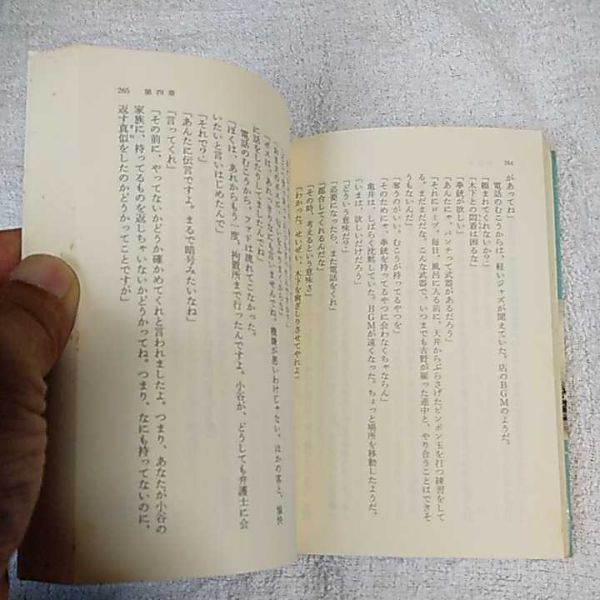 264
があってね」
電話のむこうからは、軽いジャズが聞えていた。店のBGMのようだ。
「頼まれてくれないか？」
「木下との問題は困るな」
「拳銃が欲しい」
「あんたにゃ、パンチって武器があるだろう」
「それにロープ。毎日、風呂に入る前に、天井からぶらさげたピンポン玉を打つ練習をして
る。まだまだだな。こんな武器で、いつまでも吉野が雇った連中と、やり合うことはできそ
うもないんだ」
「奪うのがいい。むこうが持ってるやつを」
「そのためにゃ、拳銃を持ってるやつに会わなくちゃならん」
亀井は、しばらく沈黙していた。BGMが遠くなった。ちょっと場所を移動したようだ。
「いまは、欲しいだけだろう」
「どういう意味だ？」
「必要になったら、また電話をくれ」
「都合してくれるんだな」
「その時、考えるという意味さ」
「わかった。せいぜい、木下を歯ぎしりさせてやれよ」
265 第四章
「ボスは、あれからなにも言いませんでね。機嫌が悪いわけじゃない。ほかの客と、愉快
に話をしたりしてましたんでね」
電話のむこう、ファドは流れてこなかった。
「ぼくは、あれからもう一度、拘置所まで行ったんですよ。小谷が、どうしても弁護士に会
いたいと言いはじめたんで」
「それで？」
「あんたに伝言ですよ。まるで暗号みたいなね」
「言ってくれ」
「その前に、やってないかどうか確かめてくれと言われましたよ。つまり、あなたが小谷の
家族に、持ってるものを返しちゃいないかどうかってね。つまり、なにも持ってないのに、
返す真似をしたのかどうかってことですが」